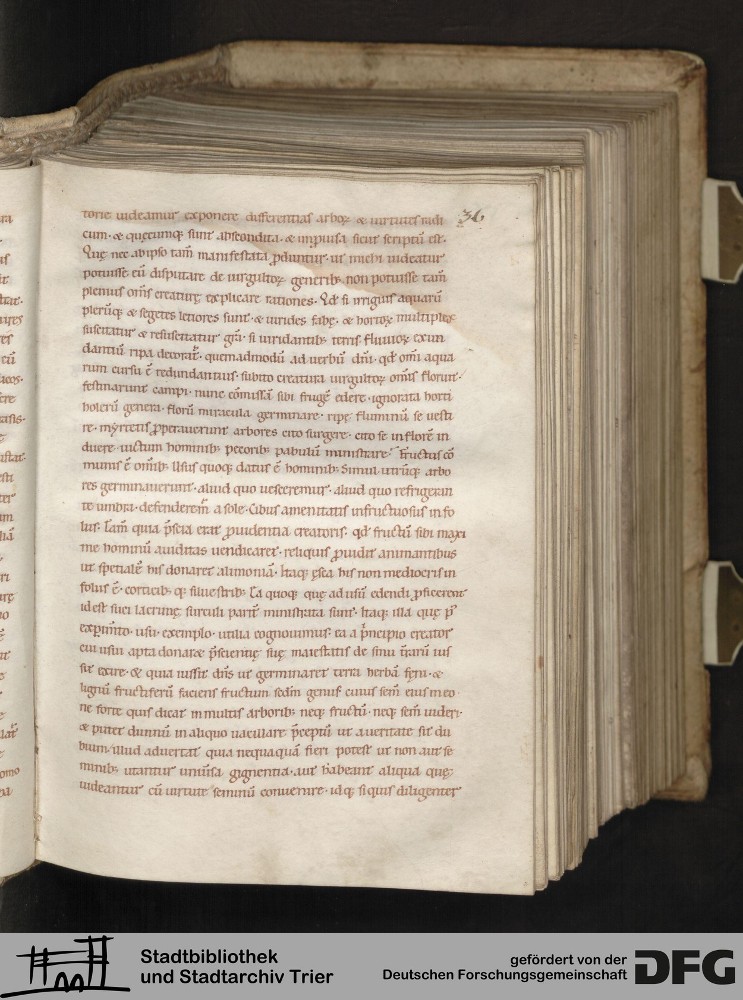 36
torie uideamur exponere differentias arboꝝ & uirtutes radi
cum · & quęcumq; sunt abscondita · & inprouisa sicut scriptū est ·
Quę nec ab ipso tam̄ manifestata ꝓduntur · ut michi uideatur
potuisse eū disputare de uirgultoꝝ generib; non potuisse tam̄
plenius om̄s creaturę explicare rationes · Qd̄ si irriguis aquarū
plerūq; & segetes letiores sunt · & uirides fabę · & hortoꝝ multiplex
suscitatur & resuscitatur gr̄a · si uiridantib; terris fluuioꝝ exun
dantiū ripa decorat᷑ · quemadmodū ad uerbū dn̄i · qd̄ om̄i aqua
rum cursu ē redundantius · subito creatura uirgultoꝝ om̄is floruit ·
festinarunt campi · nunc cōmissā sibi frugē edere · ignorata horti
holerū genera · florū miracula germinare · ripę fluminū se uesti
re · myrtetis ꝓperauerunt arbores cito surgere · cito se in florē in
duere · uictum hominib; pecorib; pabulū ministrare · Fructus cō
munis ē om̄ib; Usus quoq; datus ē hominib; Simul utrūq; arbo
res germinauerunt · aliud quo uesceremur · aliud quo refrigeran
te umbra · defenderem̄ a sole · Cibus amenitatis in fructu · usus in fo
liis · Tam̄ quia p̄scia erat ꝓuidentia creatoris · qd̄ fructū sibi maxi
me hominū auiditas uendicaret · reliquis ꝓuidit animantibus
ut spetialē his donaret alimoniā · Itaq; esca his non mediocris in
foliis ē · corticib; q; siluestrib; Ea quoq; quę ad usū edendi ꝓficerent
id est suci lacrimę surculi parit̄ ministrata sunt · Itaq; illa quę p᷑
exꝑim̄to · usu · exemplo · utilia cognouimus · ea a p̄ncipio creator
cui usui apta donarat p̄scientię suę maiestatis de sinu t̄rarū ius
sit exire · & quia iussit dn̄s ut germinaret terra herbā fęni · &
lignū fructiferū faciens fructum scd̄m genus cuius sem̄ eius in eo ·
ne forte quis dicat in multis arborib; neq; fructū · neq; sem̄ uideri ·
& putet diuinū in aliquo uacillare p̄ceptū ut a ueritate sit du
bium · illud aduertat quia nequaquā fieri potest ut non aut se
minib; utantur uniūsa gignentia · aut habeant aliqua quę
uideantur cū uirtute seminū conuenire · id q; si quis diligenter
Stadtbibliothek
und Stadtarchiv Trier
gefördert von der
Deutschen Forschungsgemeinschaft
DFG